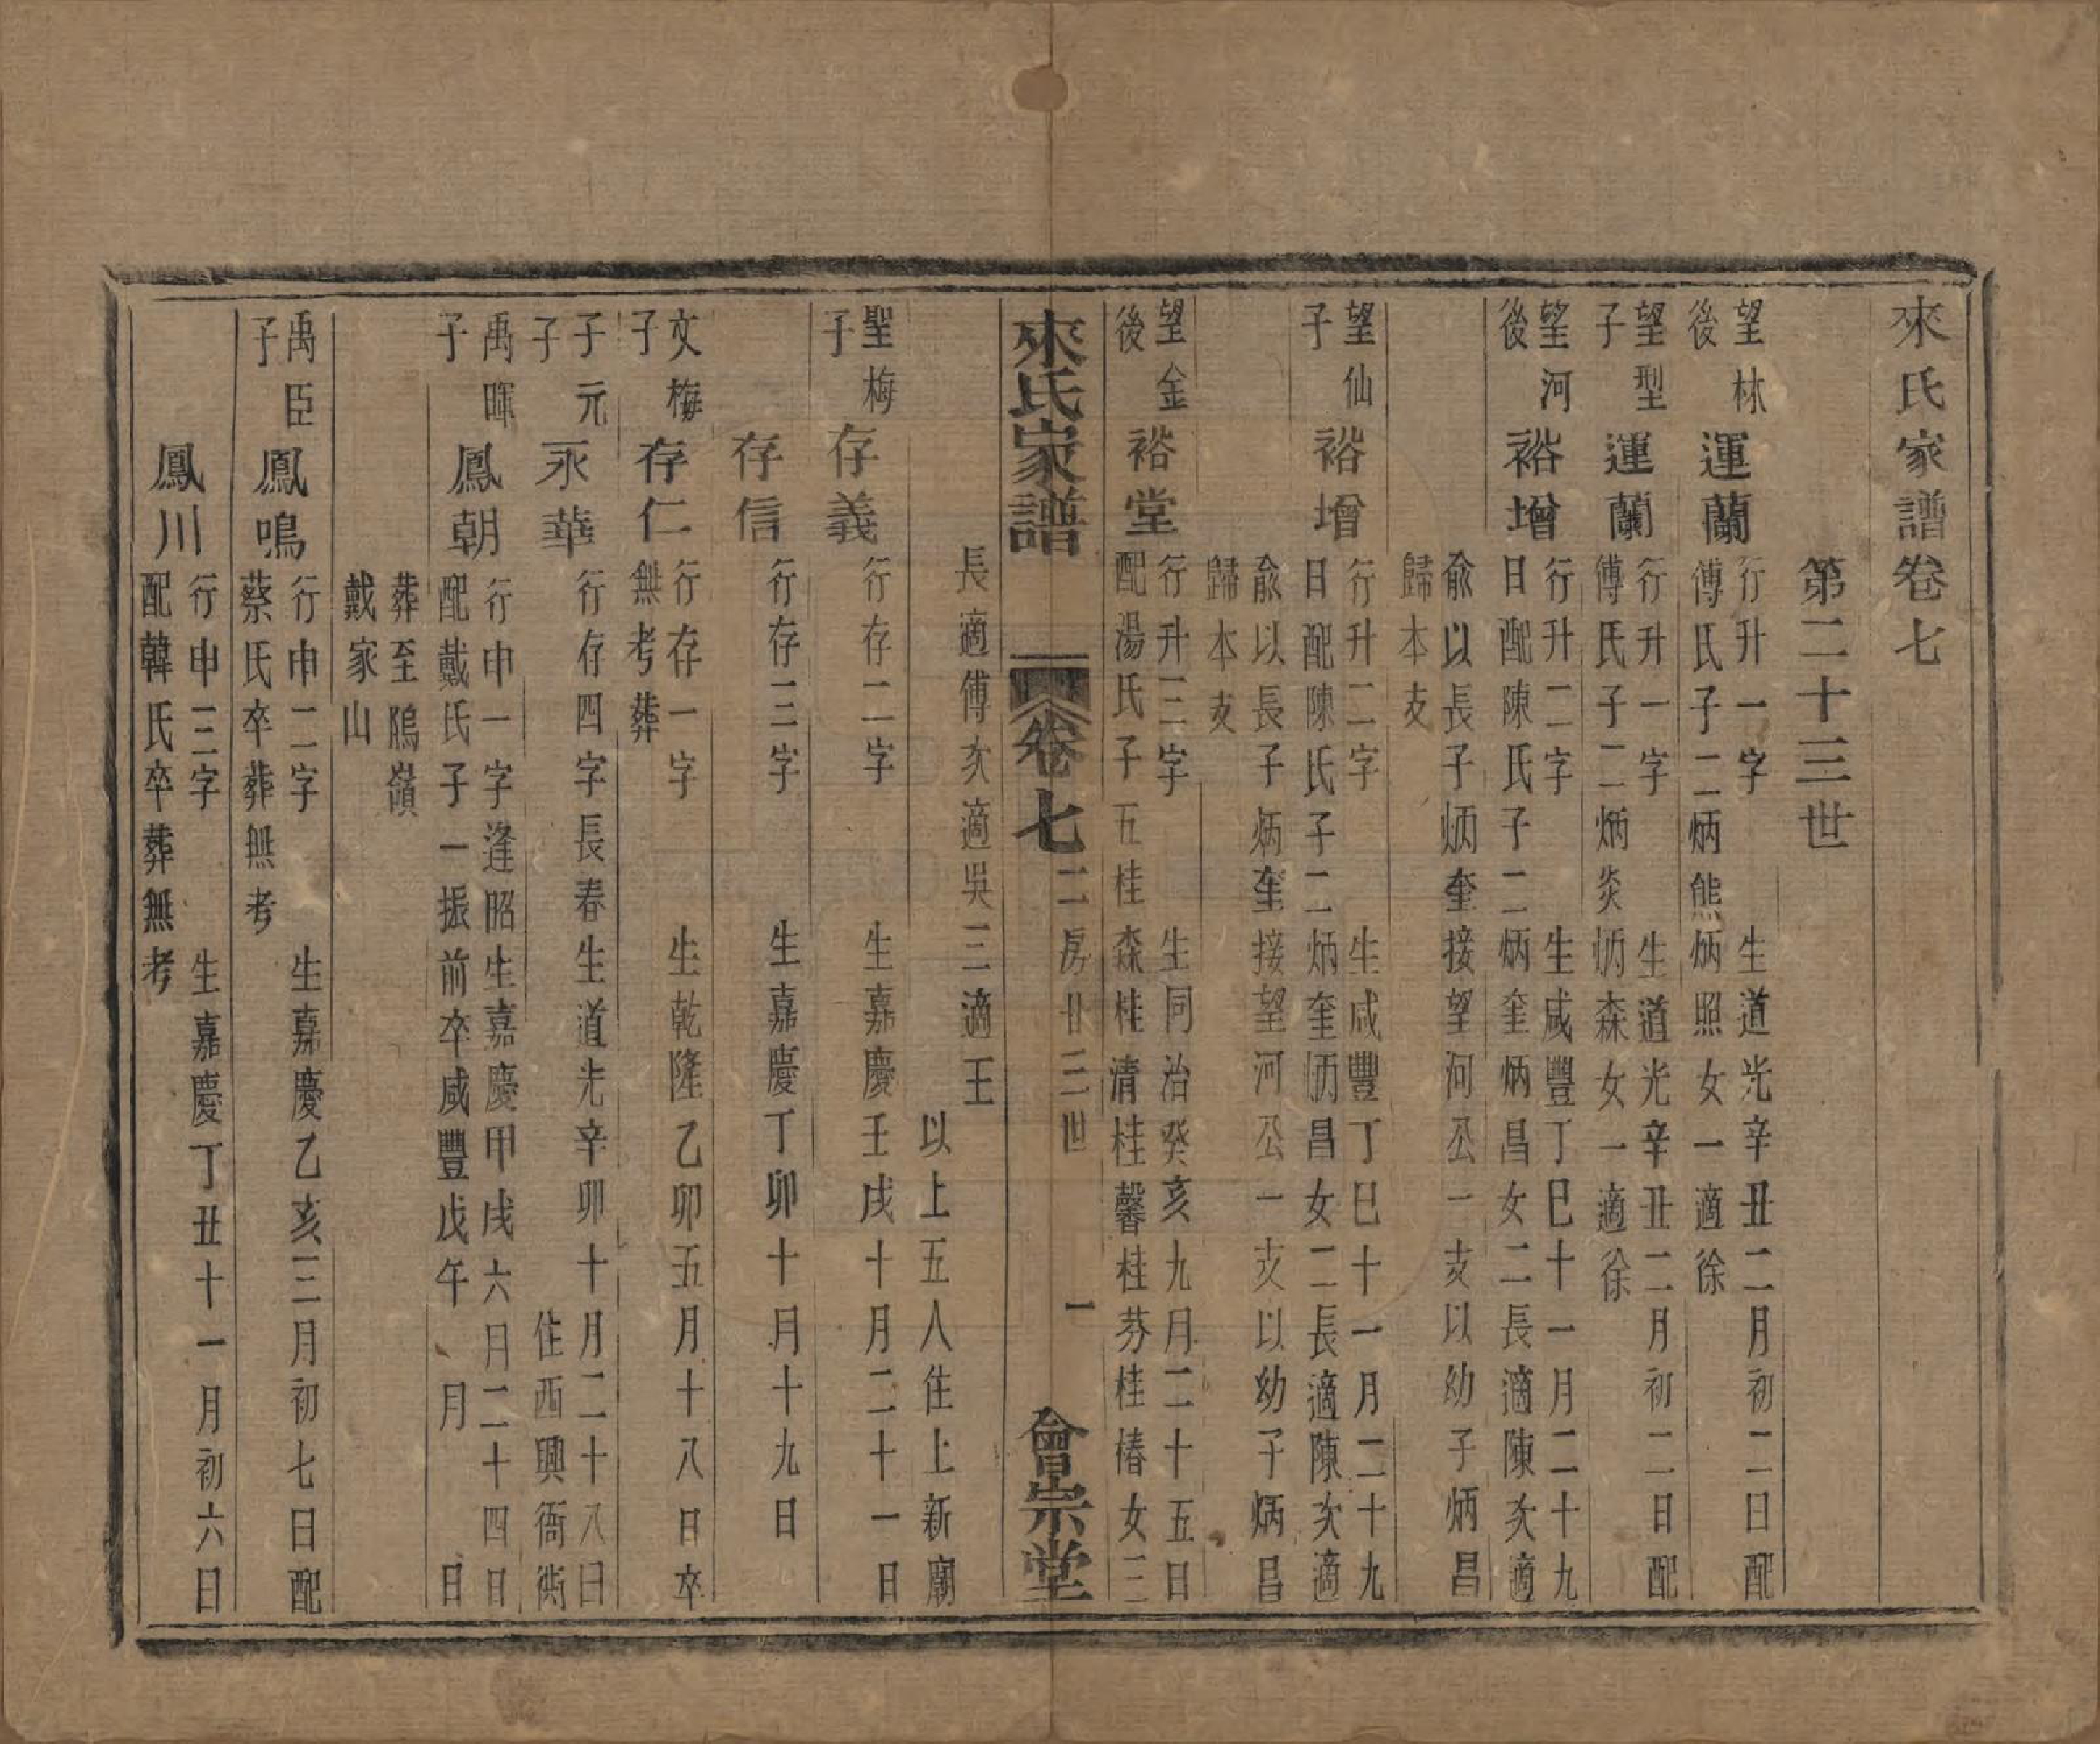 來氏家譜卷七
第二十三世
望林後
運蘭
行升一字 生道光辛丑二月初二日配
傅氏子二炳熊炳照女一適徐
望型子
運蘭
行升一字 生道光辛丑二月初二日配
傅氏子二炳炎炳森女一適徐
望河後
裕增
行升二字 生咸豐丁巳十一月二十九
日配陳氏子二炳奎炳昌女二長適陳次適
俞以長子炳奎接望河公一支以幼子炳昌
歸本支
望仙子
裕增
行升二字 生咸豐丁巳十一月二十九
日配陳氏子二炳奎炳昌女二長適陳次適
俞以長子炳奎接望河公一支以幼子炳昌
歸本支
望金後
裕堂
行升三字 生同治癸亥九月二十五日
配湯氏子五桂森桂清桂馨桂芬桂椿女三
來氏家譜 卷七 二房廿三世 一 會宗堂
長適傅次適吳三適王
以上五人住上新廟
聖梅子
存義
行存二字 生嘉慶壬戌十月二十一日
存信
行存三字 生嘉慶丁卯十月十九日
文梅子
存仁
行存一字 生乾隆乙卯五月十八日卒
無考葬
子元子
永華
行存四字長春生道光辛卯十月二十八日
住西興衙衖
禹暉子
鳳朝
行申一字逢昭生嘉慶甲戌六月二十四日
配戴氏子一振前卒咸豐戊午、月 日
葬至鵰嶺
戴家山
禹臣子
鳳鳴
行申二字 生嘉慶乙亥三月初七日配
蔡氏卒葬無考
鳳川
行申三字 生嘉慶丁丑十一月初六日
配韓氏卒葬無考